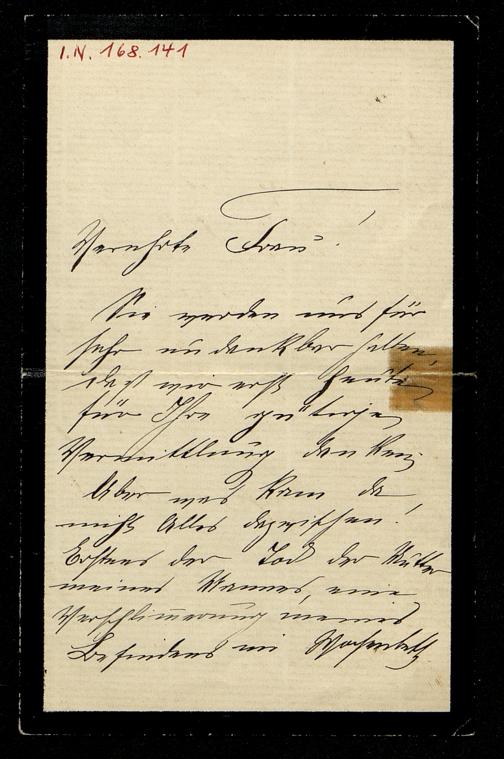 I.N. 168.141
Verehrte Frau!
Sie werden uns für
sehr undankbar halten,
daß wir erst heute
für Ihre gütige
Vermittlung danken;
Aber was kam da
nicht Alles dazwischen!
Erstens der Tod der Mutter
meines Mannes, eine
Verschlimmerung meines
Befindens im Wochenbett